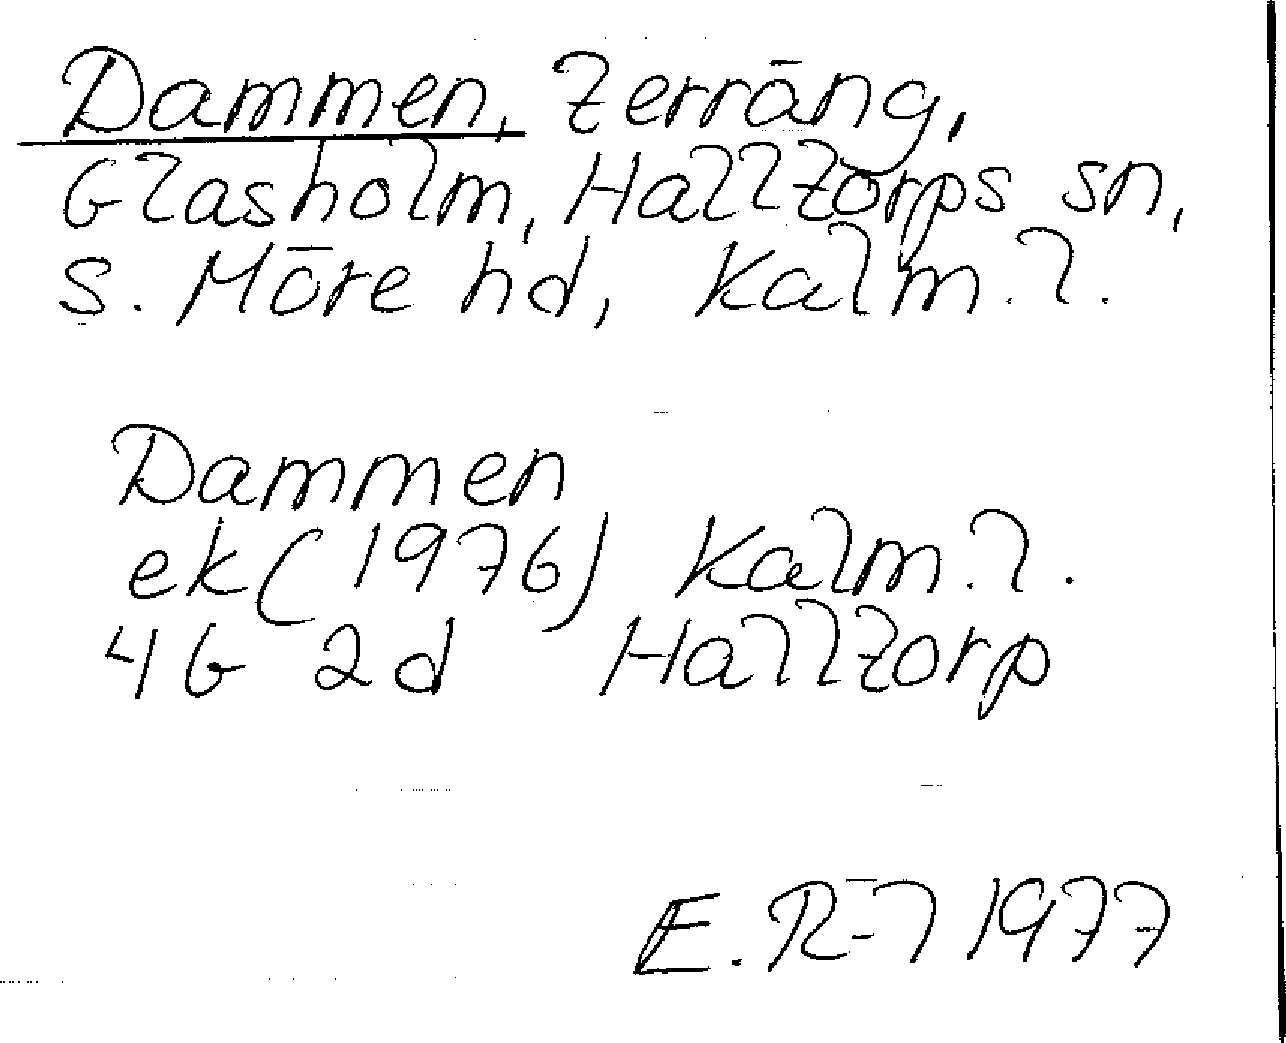 Dammen, terräng,
Glasholm, Halltorps sn,
S. Möre hd, Kalm. l.
Dammen
ek (1976) Kalm. l.
4G 2d Halltorp
E. R-l 1977